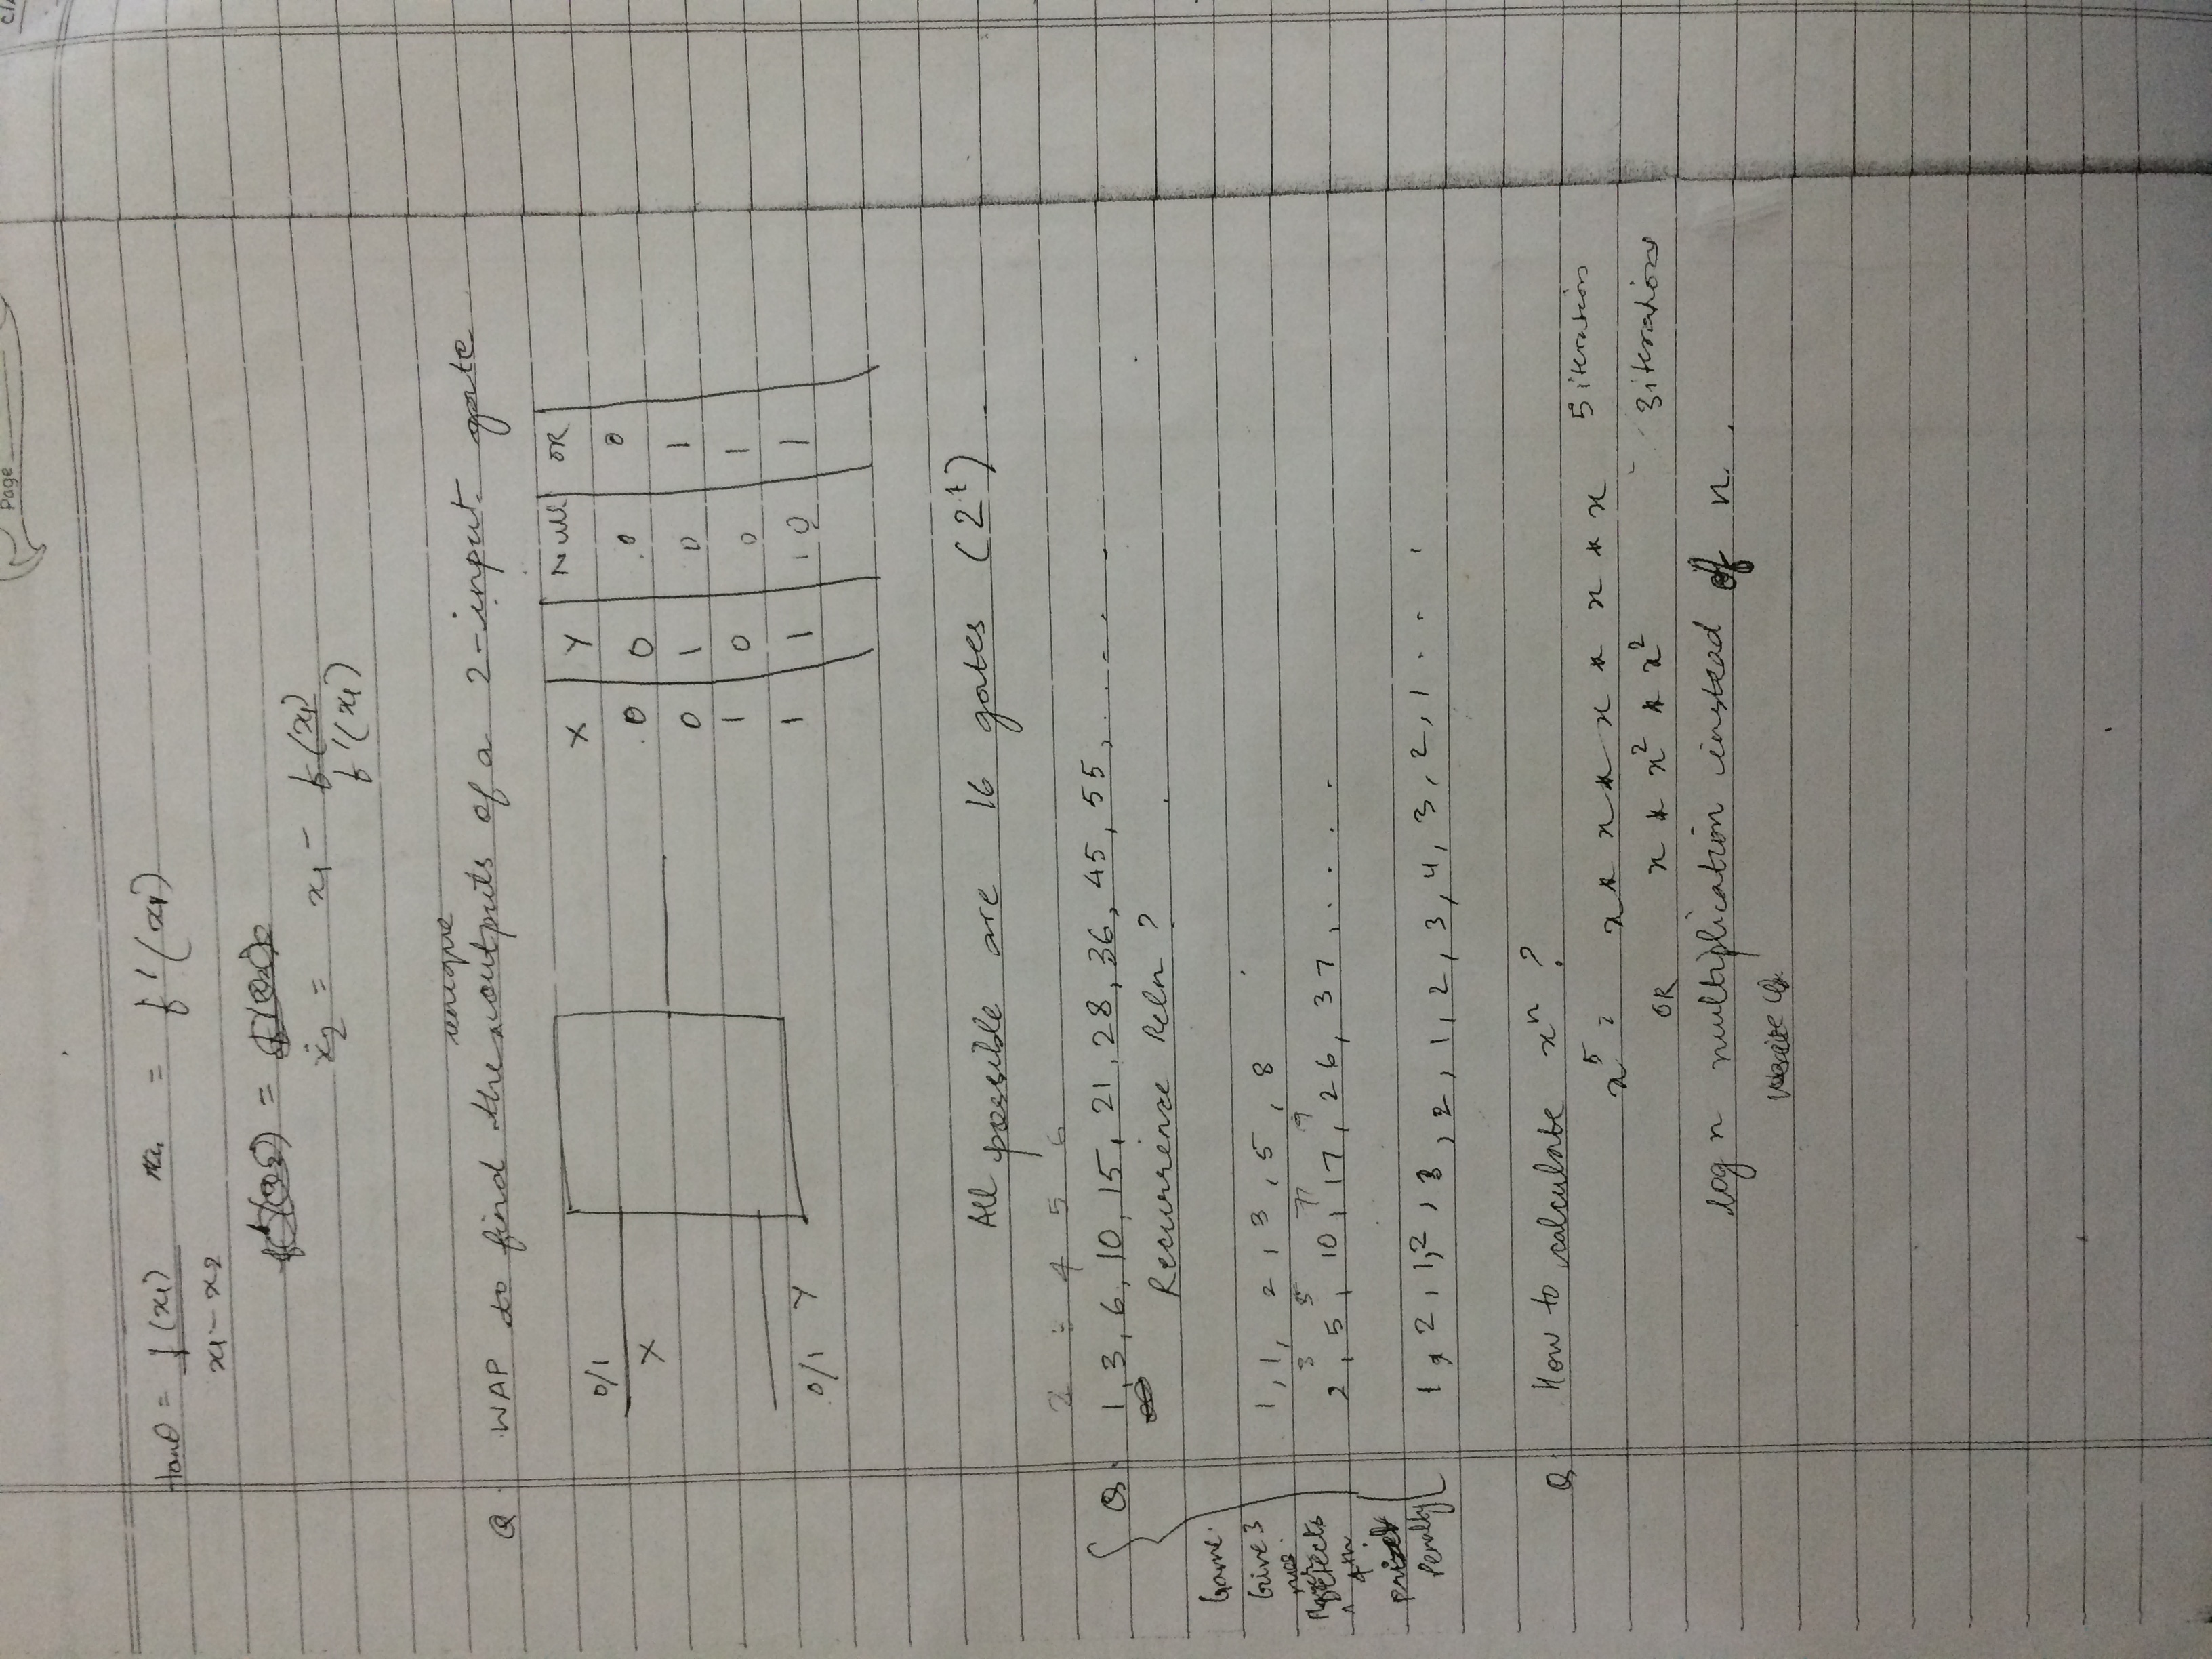 Page
tanθ = f(x1) / x1 - x2 = f'(x1)
x2 = x1 - f(x1) / f'(x1)
unique
Q. WAP to find the outputs of a 2-input gate
X Y Null OR
0/1
X
0 0 0 0
0 1 0 1
1 0 0 1
1 1 0 1
0/1 Y
All possible are 16 gates (2^4)
2 3 4 5 6
Q. 1, 3, 6, 10, 15, 21, 28, 36, 45, 55, .....
Recurrence Reln ?
Game.
Give 3
nos.
Player
Detects
4th
prize
Penalty
1, 1, 2, 3, 5, 8
3 5 7 9
2, 5, 10, 17, 26, 37, ....
1, 2, 1, 2, 3, 2, 1, 2, 3, 4, 3, 2, 1 ...
Q How to calculate x^n ?
x^5 = x * x * x * x * x 5 iterations
OR x * x^2 * x^2 3 iterations
log n multiplication instead of n.